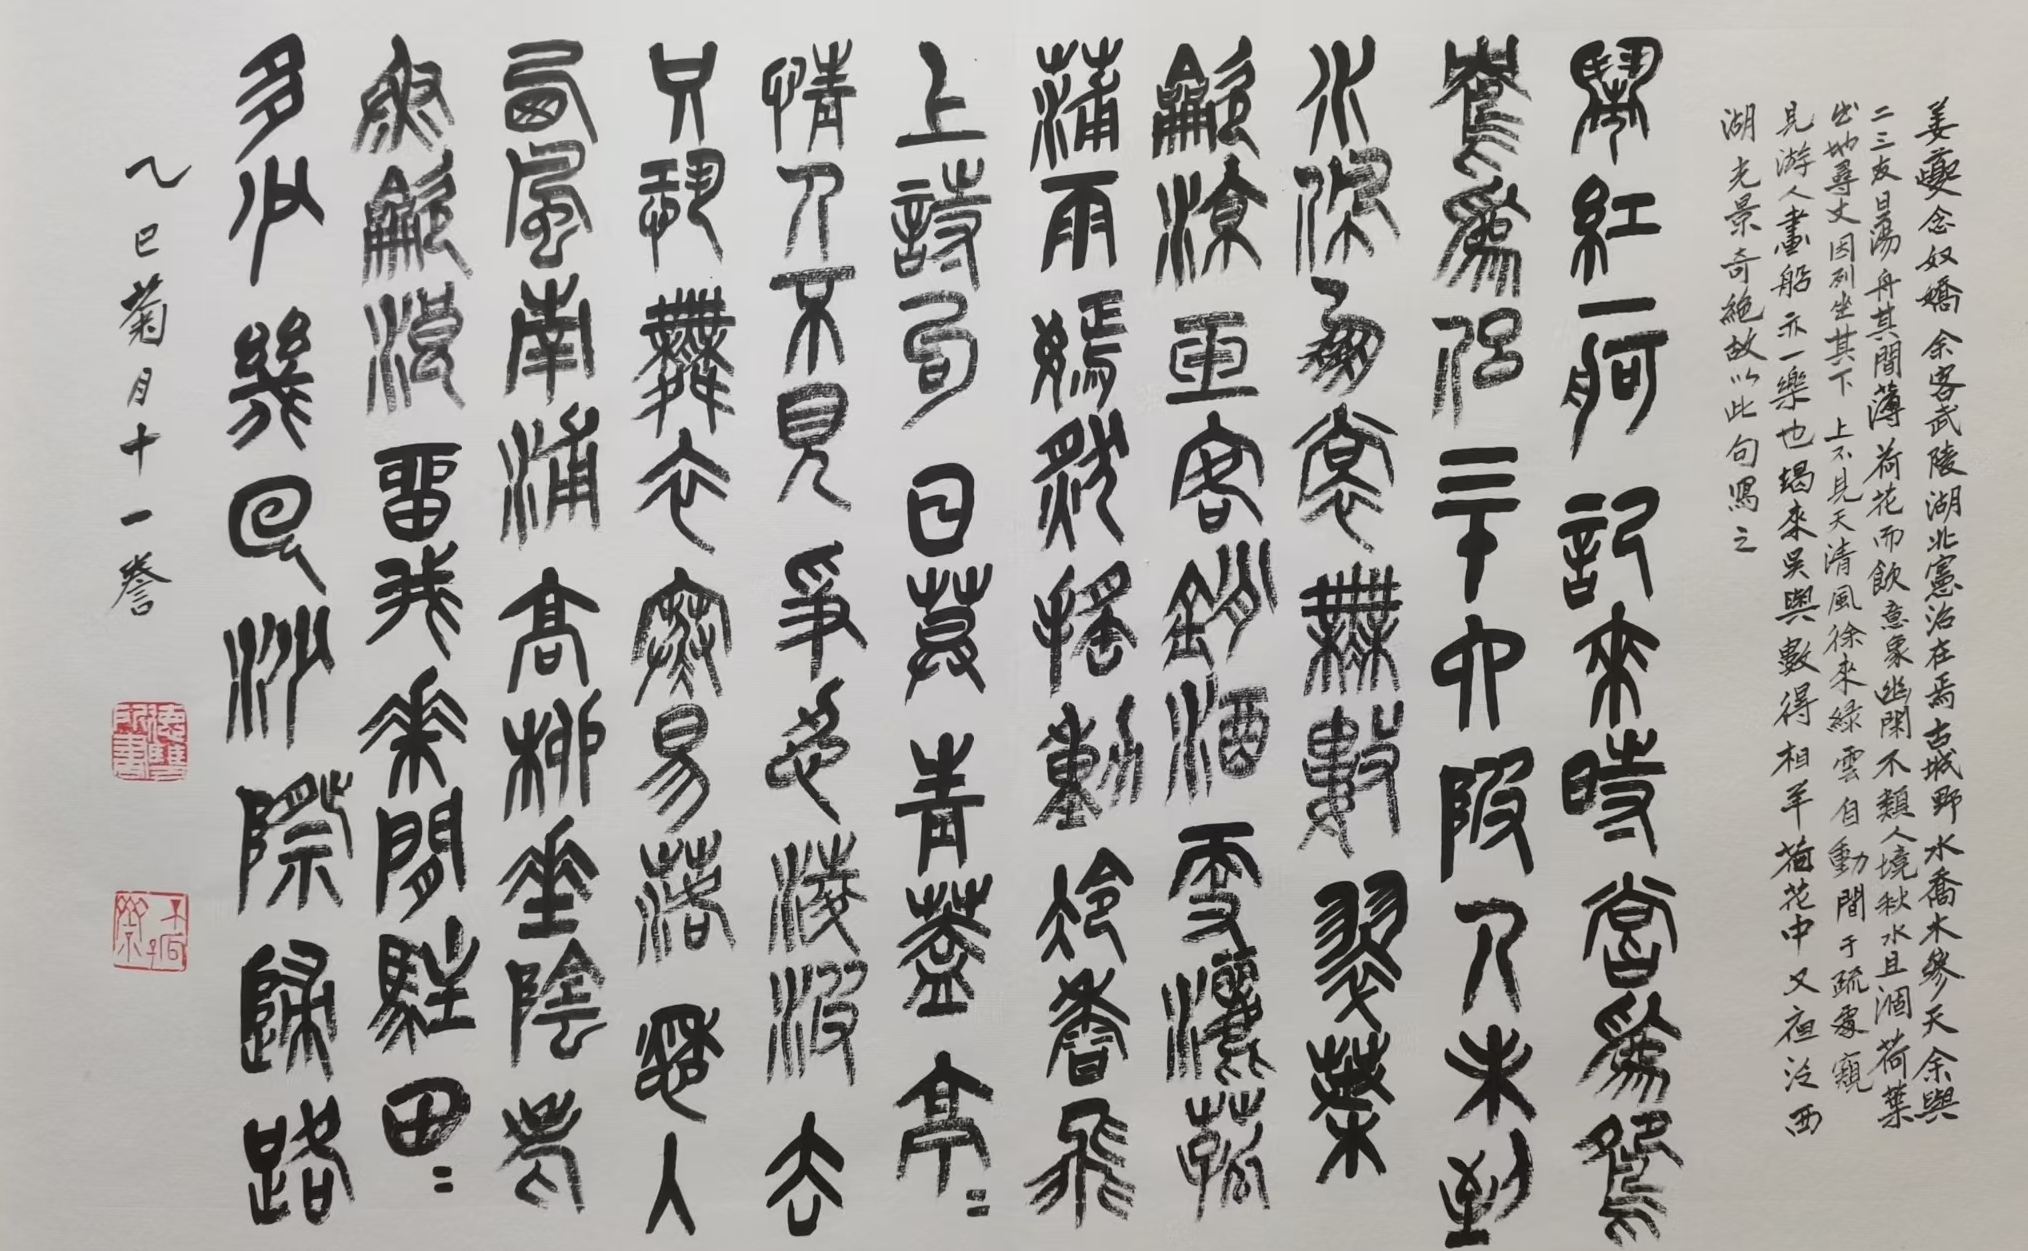 姜夔念奴嬌 余客武陵湖北憲治在焉古城野水喬木參天余與
二三友日蕩舟其間薄荷花而飲意象幽閑不類人境秋水且涸荷葉
出地尋丈因列坐其下上不見天清風徐來綠雲自動間于疏處窺
見游人畫船亦一樂也朅來吳興數得相羊荷花中又夜泛西
湖光景奇絕故以此句寫之
鬧紅一舸記來時嘗與鴛
鴦為侶三十六陂人未到
水佩風裳無數翠葉
龡涼玉容銷酒更灑菰
蒲雨嫣然搖動冷香飛
上詩句日暮青蓋亭〻
情人不見爭忍凌波去
只恐舞衣寒易落愁人
西風南浦高柳垂陰老
魚龡浪留我花間駐田〻
多少幾回沙際歸路
乙巳菊月十一謄